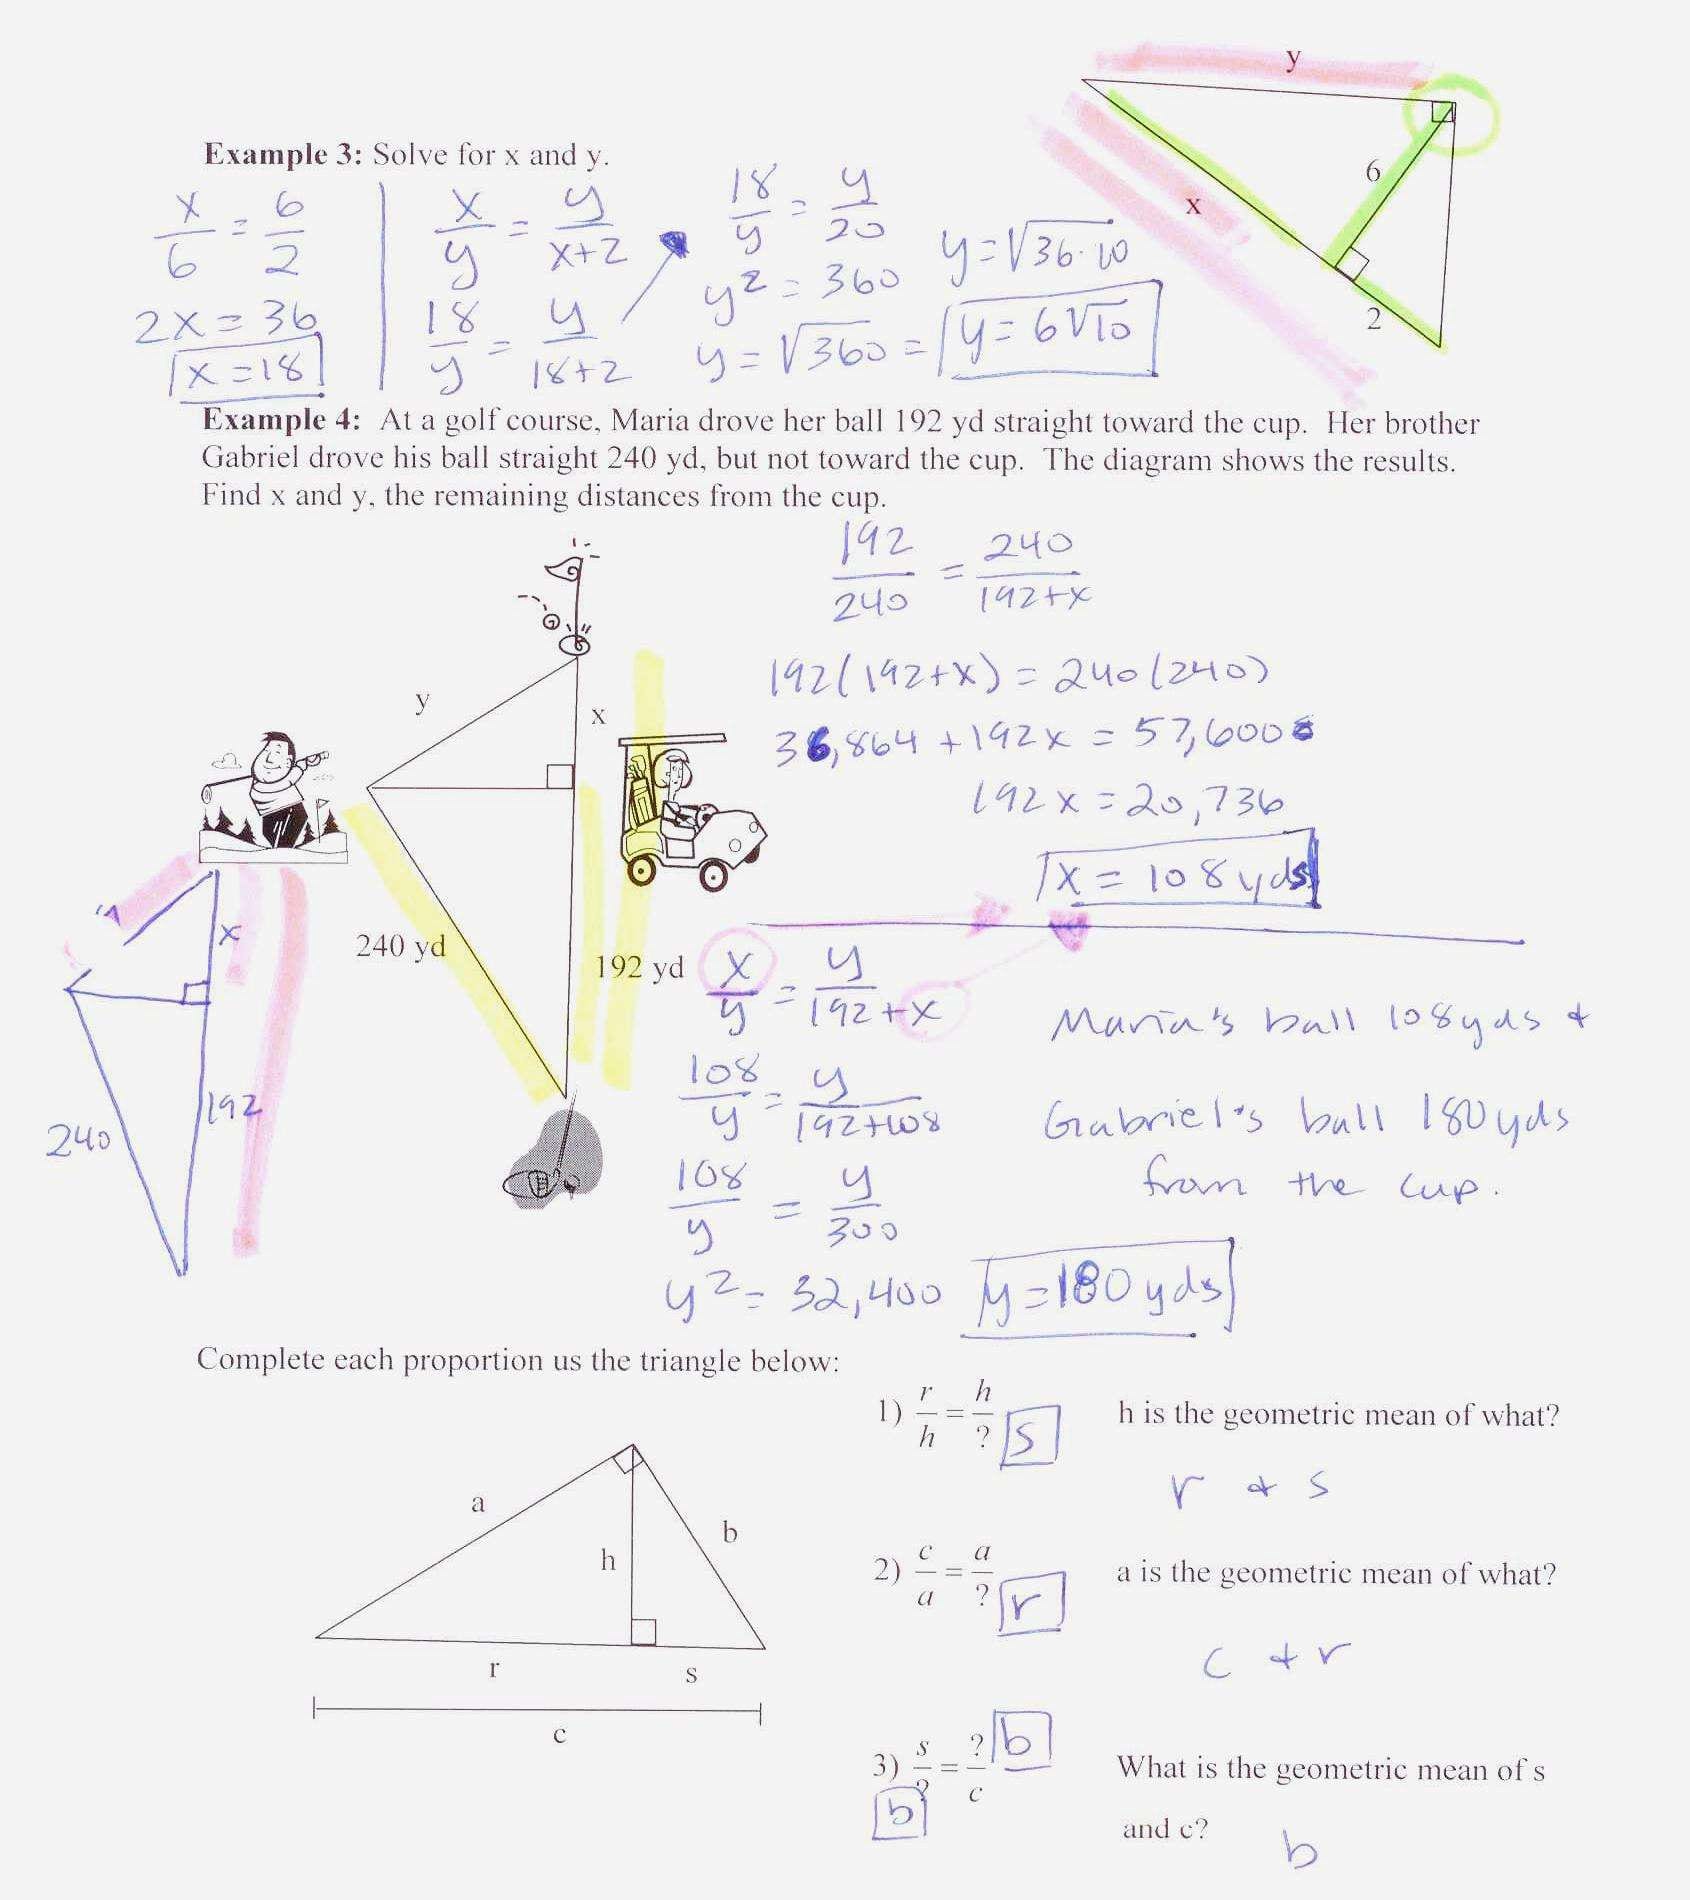 y
Example 3: Solve for x and y.
x/6 = 6/2
2x = 36
x = 18
x/y = y/x+2
18/y = y/18+2
18/y = y/20
y² = 360
y = √360 = y = 6√10
y = √36·10
6
x
2
Example 4: At a golf course, Maria drove her ball 192 yd straight toward the cup. Her brother
Gabriel drove his ball straight 240 yd, but not toward the cup. The diagram shows the results.
Find x and y, the remaining distances from the cup.
192/240 = 240/192+x
192(192+x) = 240(240)
36,864 + 192x = 57,600
192x = 20,736
x = 108 yds
y
x
240 yd
192 yd
x
240
192
x/y = y/192+x
108/y = y/192+108
108/y = y/300
y² = 32,400
y = 180 yds
Maria's ball 108 yds &
Gabriel's ball 180 yds
from the cup.
Complete each proportion us the triangle below:
a
b
h
r
s
c
1) r/h = h/? s
h is the geometric mean of what?
r & s
2) c/a = a/? r
a is the geometric mean of what?
c & r
3) s/? = ?/c b
b
What is the geometric mean of s
and c?
b